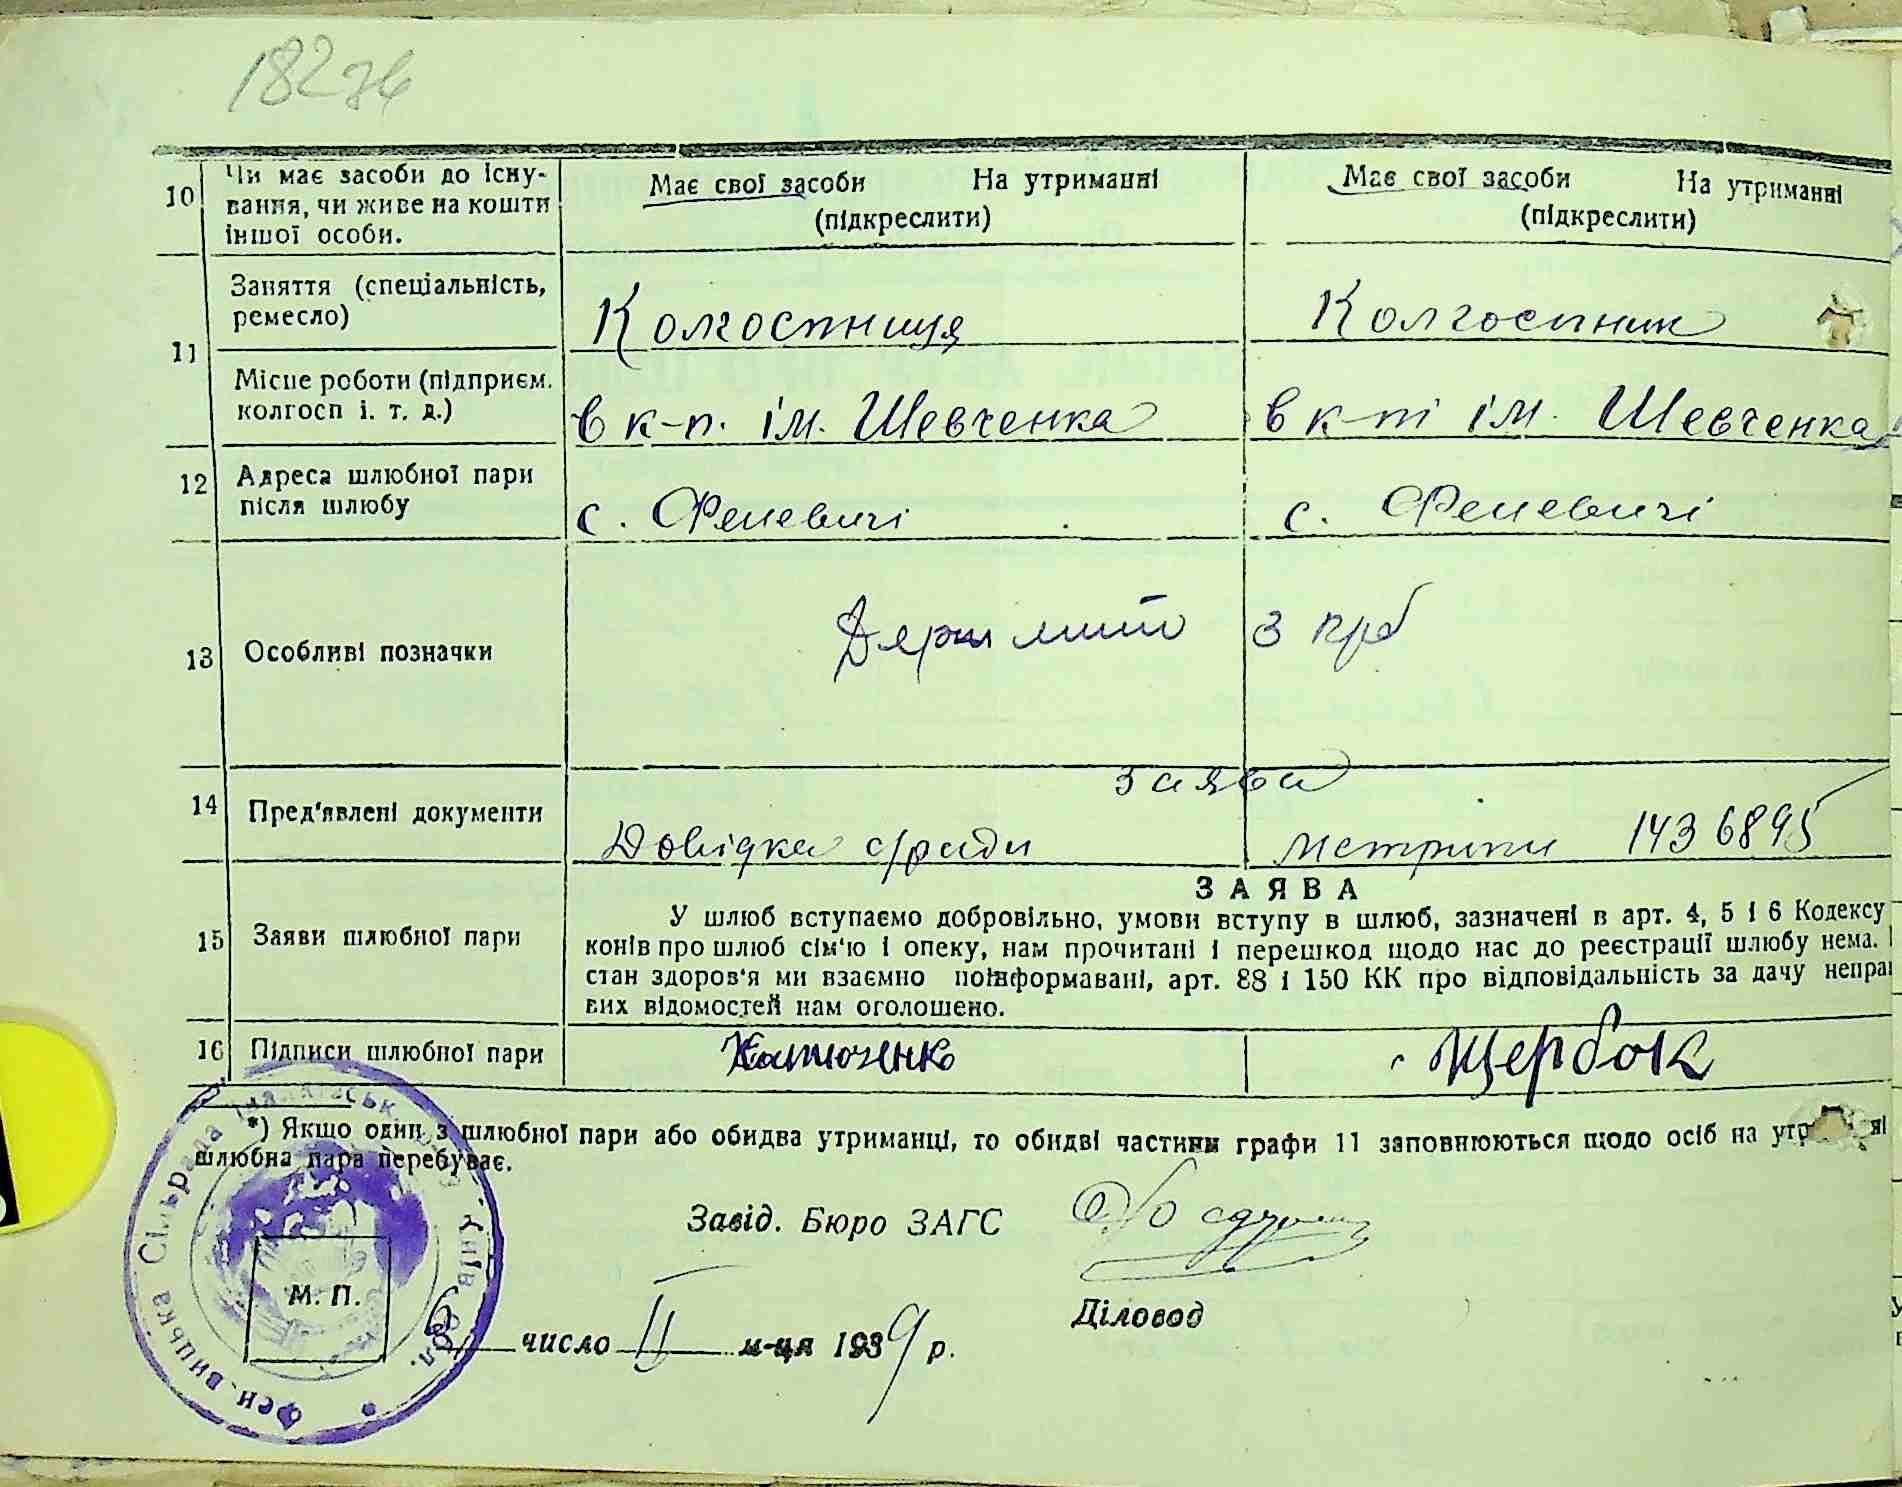 182зв
10 Чи має засоби до існу-
вання, чи живе на кошти
іншої особи.
Має свої засоби На утриманні
(підкреслити)
Має свої засоби На утриманні
(підкреслити)
11 Заняття (спеціальність,
ремесло)
Колгоспниця
Колгоспник
Місце роботи (підприєм.
колгосп і. т. д.)
в к-п. ім. Шевченка
в к-пі ім. Шевченка
12 Адреса шлюбної пари
після шлюбу
с. Феневичі
с. Феневичі
13 Особливі позначки
Держ мито 3 крб
14 Пред'явлені документи
заява
Довідка с/ради
метрики 1436895
15 Заяви шлюбної пари
ЗАЯВА
У шлюб вступаємо добровільно, умови вступу в шлюб, зазначені в арт. 4, 5 і 6 Кодексу
конів про шлюб сім'ю і опеку, нам прочитані і перешкод щодо нас до реєстрації шлюбу нема.
стан здоров'я ми взаємно поінформавані, арт. 88 і 150 КК про відповідальність за дачу непра
вих відомостей нам оголошено.
16 Підписи шлюбної пари
Щербок
*) Якщо один з шлюбної пари або обидва утриманці, то обидві частини графи 11 заповнюються щодо осіб на утр
шлюбна пара перебуває.
Завід. Бюро ЗАГС
Діловод
М. П.
число II м-ця 1939 р.
Фен.вицька Сільрада